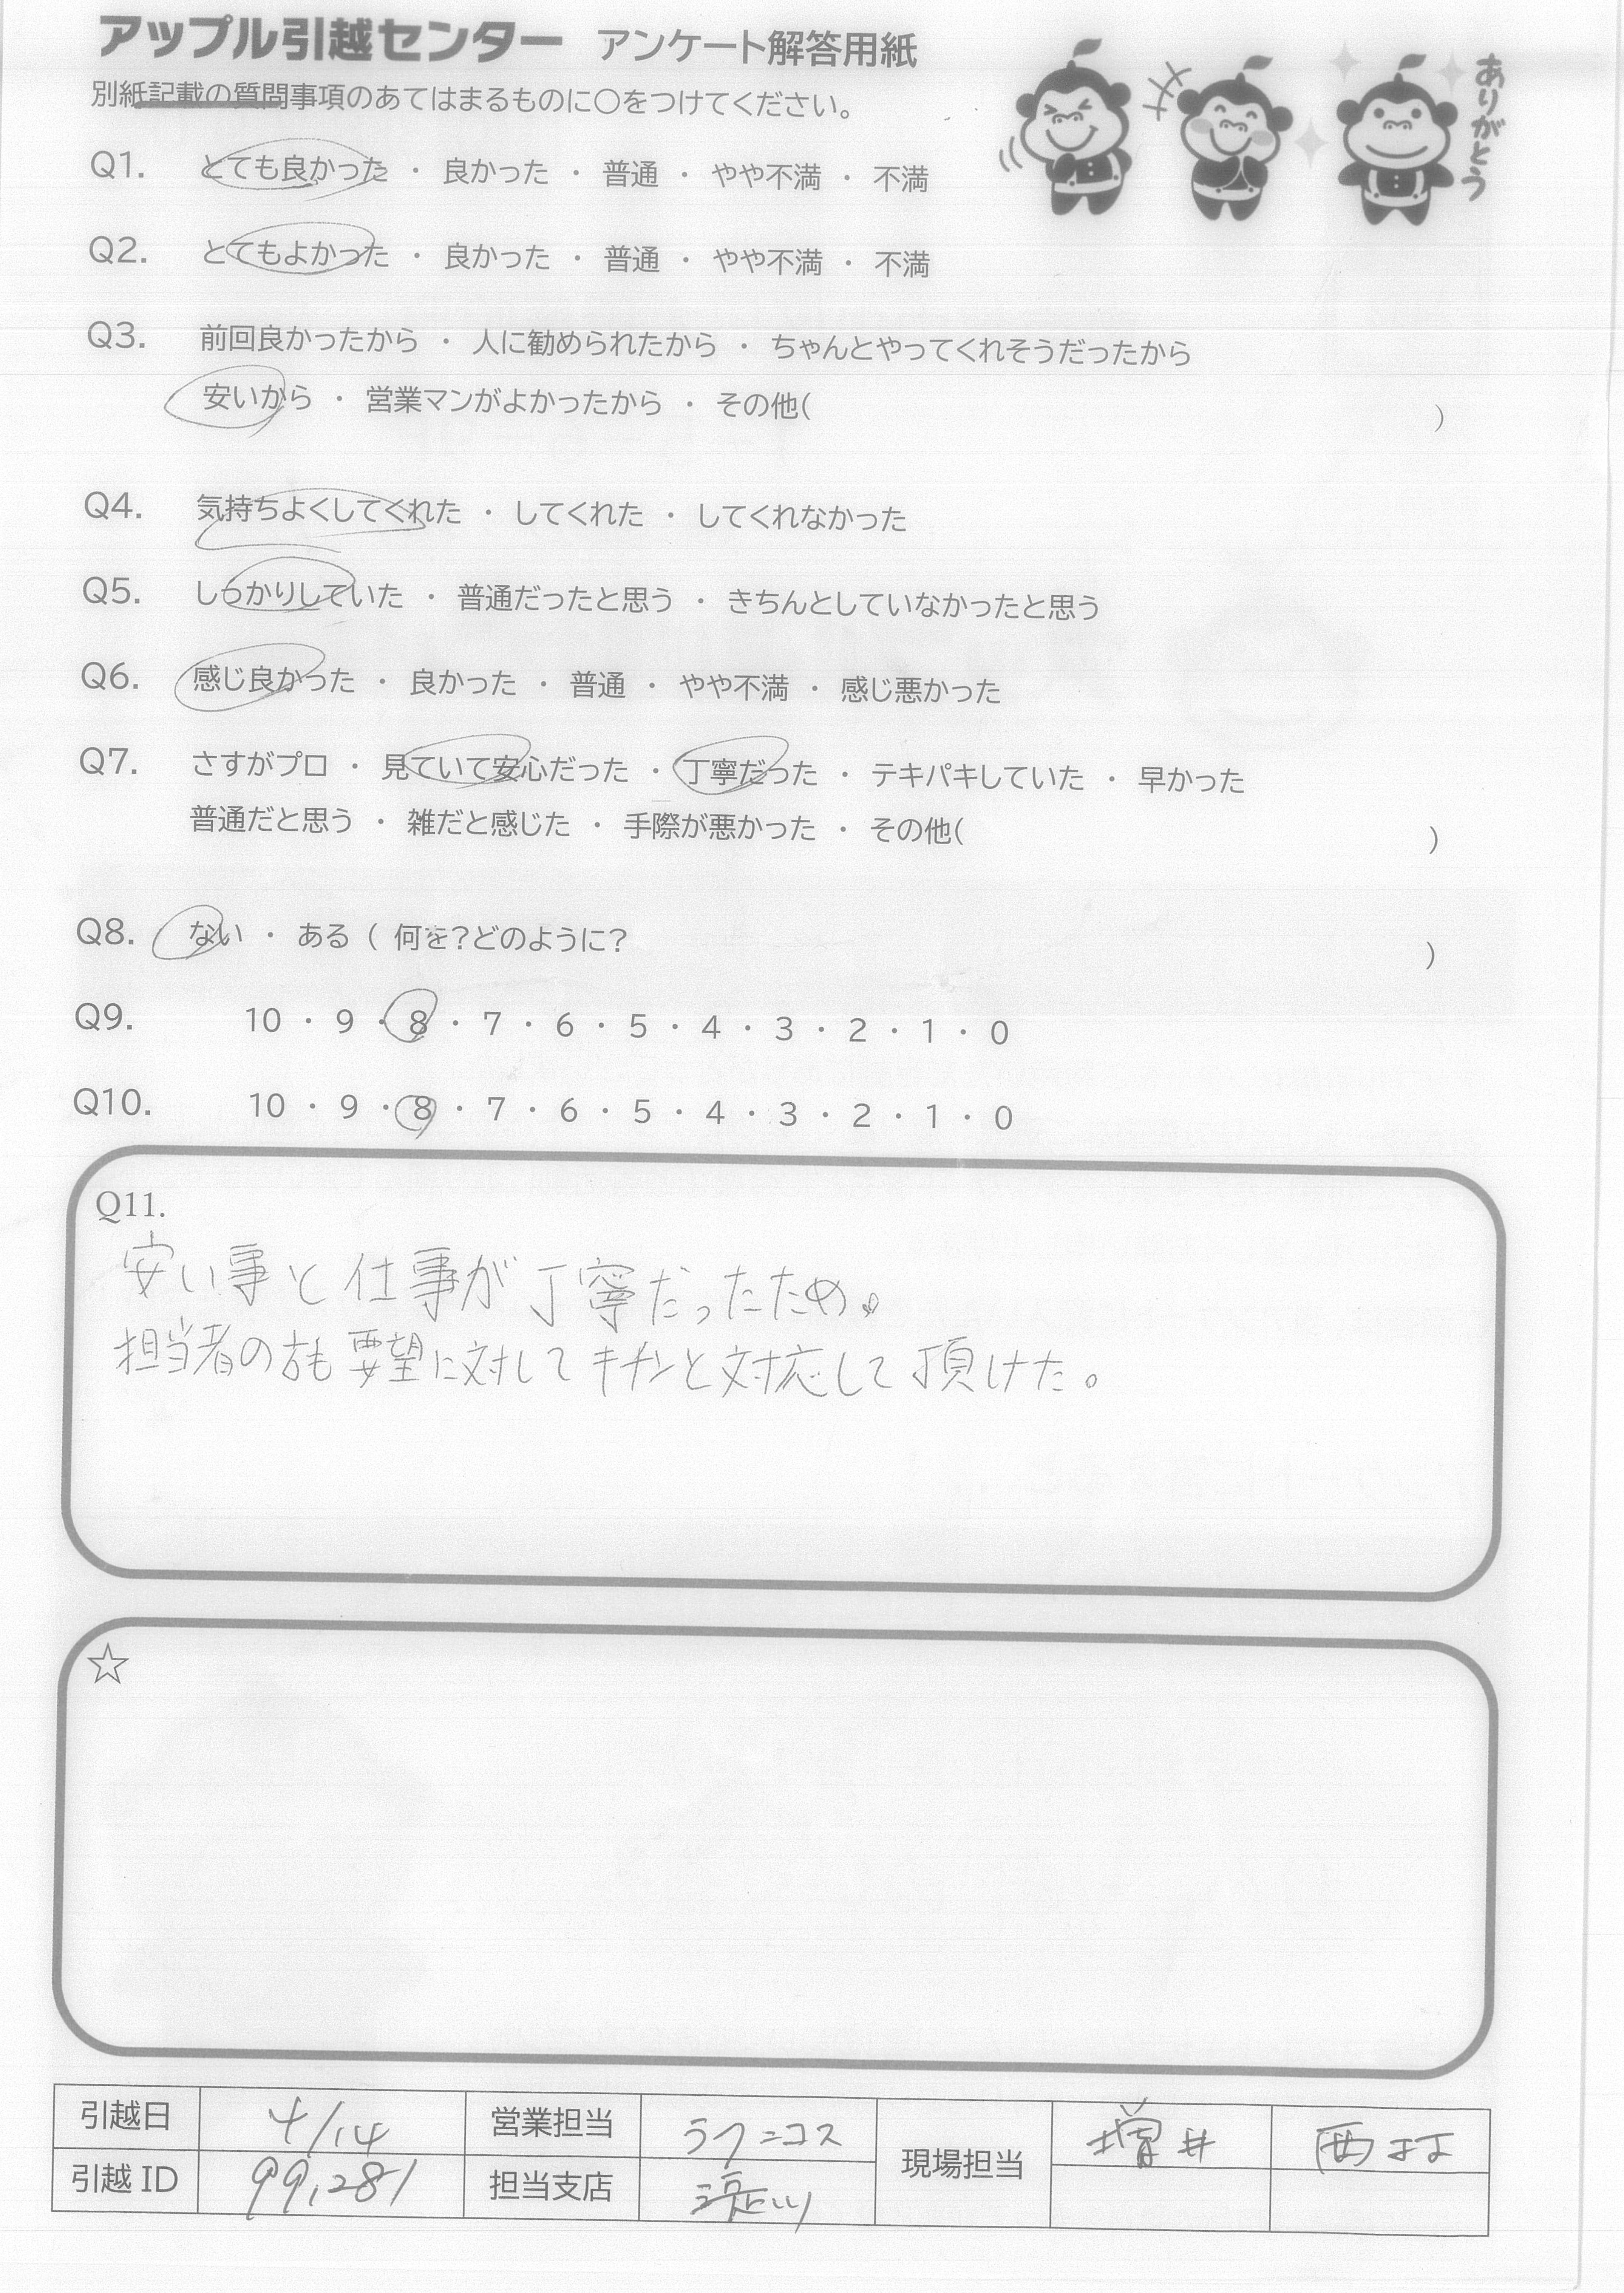 アップル引越センター アンケート解答用紙
別紙記載の質問事項のあてはまるものに○をつけてください。
ありがとう
Q1. とても良かった ・ 良かった ・ 普通 ・ やや不満 ・ 不満
Q2. とてもよかった ・ 良かった ・ 普通 ・ やや不満 ・ 不満
Q3. 前回良かったから ・ 人に勧められたから ・ ちゃんとやってくれそうだったから
安いから ・ 営業マンがよかったから ・ その他( )
Q4. 気持ちよくしてくれた ・ してくれた ・ してくれなかった
Q5. しっかりしていた ・ 普通だったと思う ・ きちんとしていなかったと思う
Q6. 感じ良かった ・ 良かった ・ 普通 ・ やや不満 ・ 感じ悪かった
Q7. さすがプロ ・ 見ていて安心だった ・ 丁寧だった ・ テキパキしていた ・ 早かった
普通だと思う ・ 雑だと感じた ・ 手際が悪かった ・ その他( )
Q8. ない ・ ある ( 何を?どのように? )
Q9. 10 ・ 9 ・ 8 ・ 7 ・ 6 ・ 5 ・ 4 ・ 3 ・ 2 ・ 1 ・ 0
Q10. 10 ・ 9 ・ 8 ・ 7 ・ 6 ・ 5 ・ 4 ・ 3 ・ 2 ・ 1 ・ 0
Q11.
安い事と仕事が丁寧だったため。
担当者の方も要望に対してキチンと対応して頂けた。
☆
引越日 4/14 営業担当 現場担当 増井 西村
引越ID 99,281 担当支店